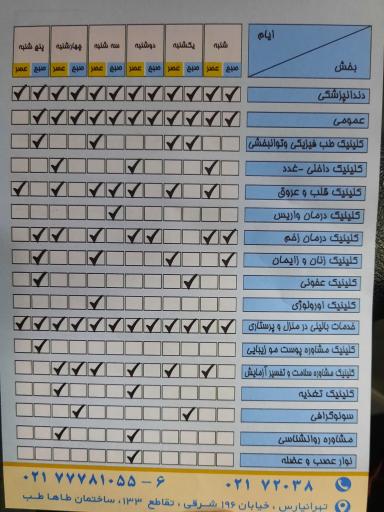 ایام
بخش
شنبه یکشنبه دوشنبه سه شنبه چهارشنبه پنج شنبه
صبح عصر صبح عصر صبح عصر صبح عصر صبح عصر صبح عصر
دندانپزشکی
عمومی
کلینیک طب فیزیکی وتوانبخشی
کلینیک داخلی -غدد
کلینیک قلب و عروق
کلینیک درمان واریس
کلینیک درمان زخم
کلینیک زنان و زایمان
کلینیک عفونی
کلینیک اورولوژی
خدمات بالینی در منزل و پرستاری
کلینیک مشاوره پوست مو زیبایی
کلینیک مشاوره سلامت و تفسیر آزمایش
کلینیک تغذیه
سونوگرافی
مشاوره روانشناسی
نوار عصب و عضله
۰۲۱ ۷۲۰۳۸ ۰۲۱ ۷۷۷۸۱۰۵۵ - ۶
تهرانپارس ، خیابان ۱۹۶ شرقی ، تقاطع ۱۳۳، ساختمان طاها طب